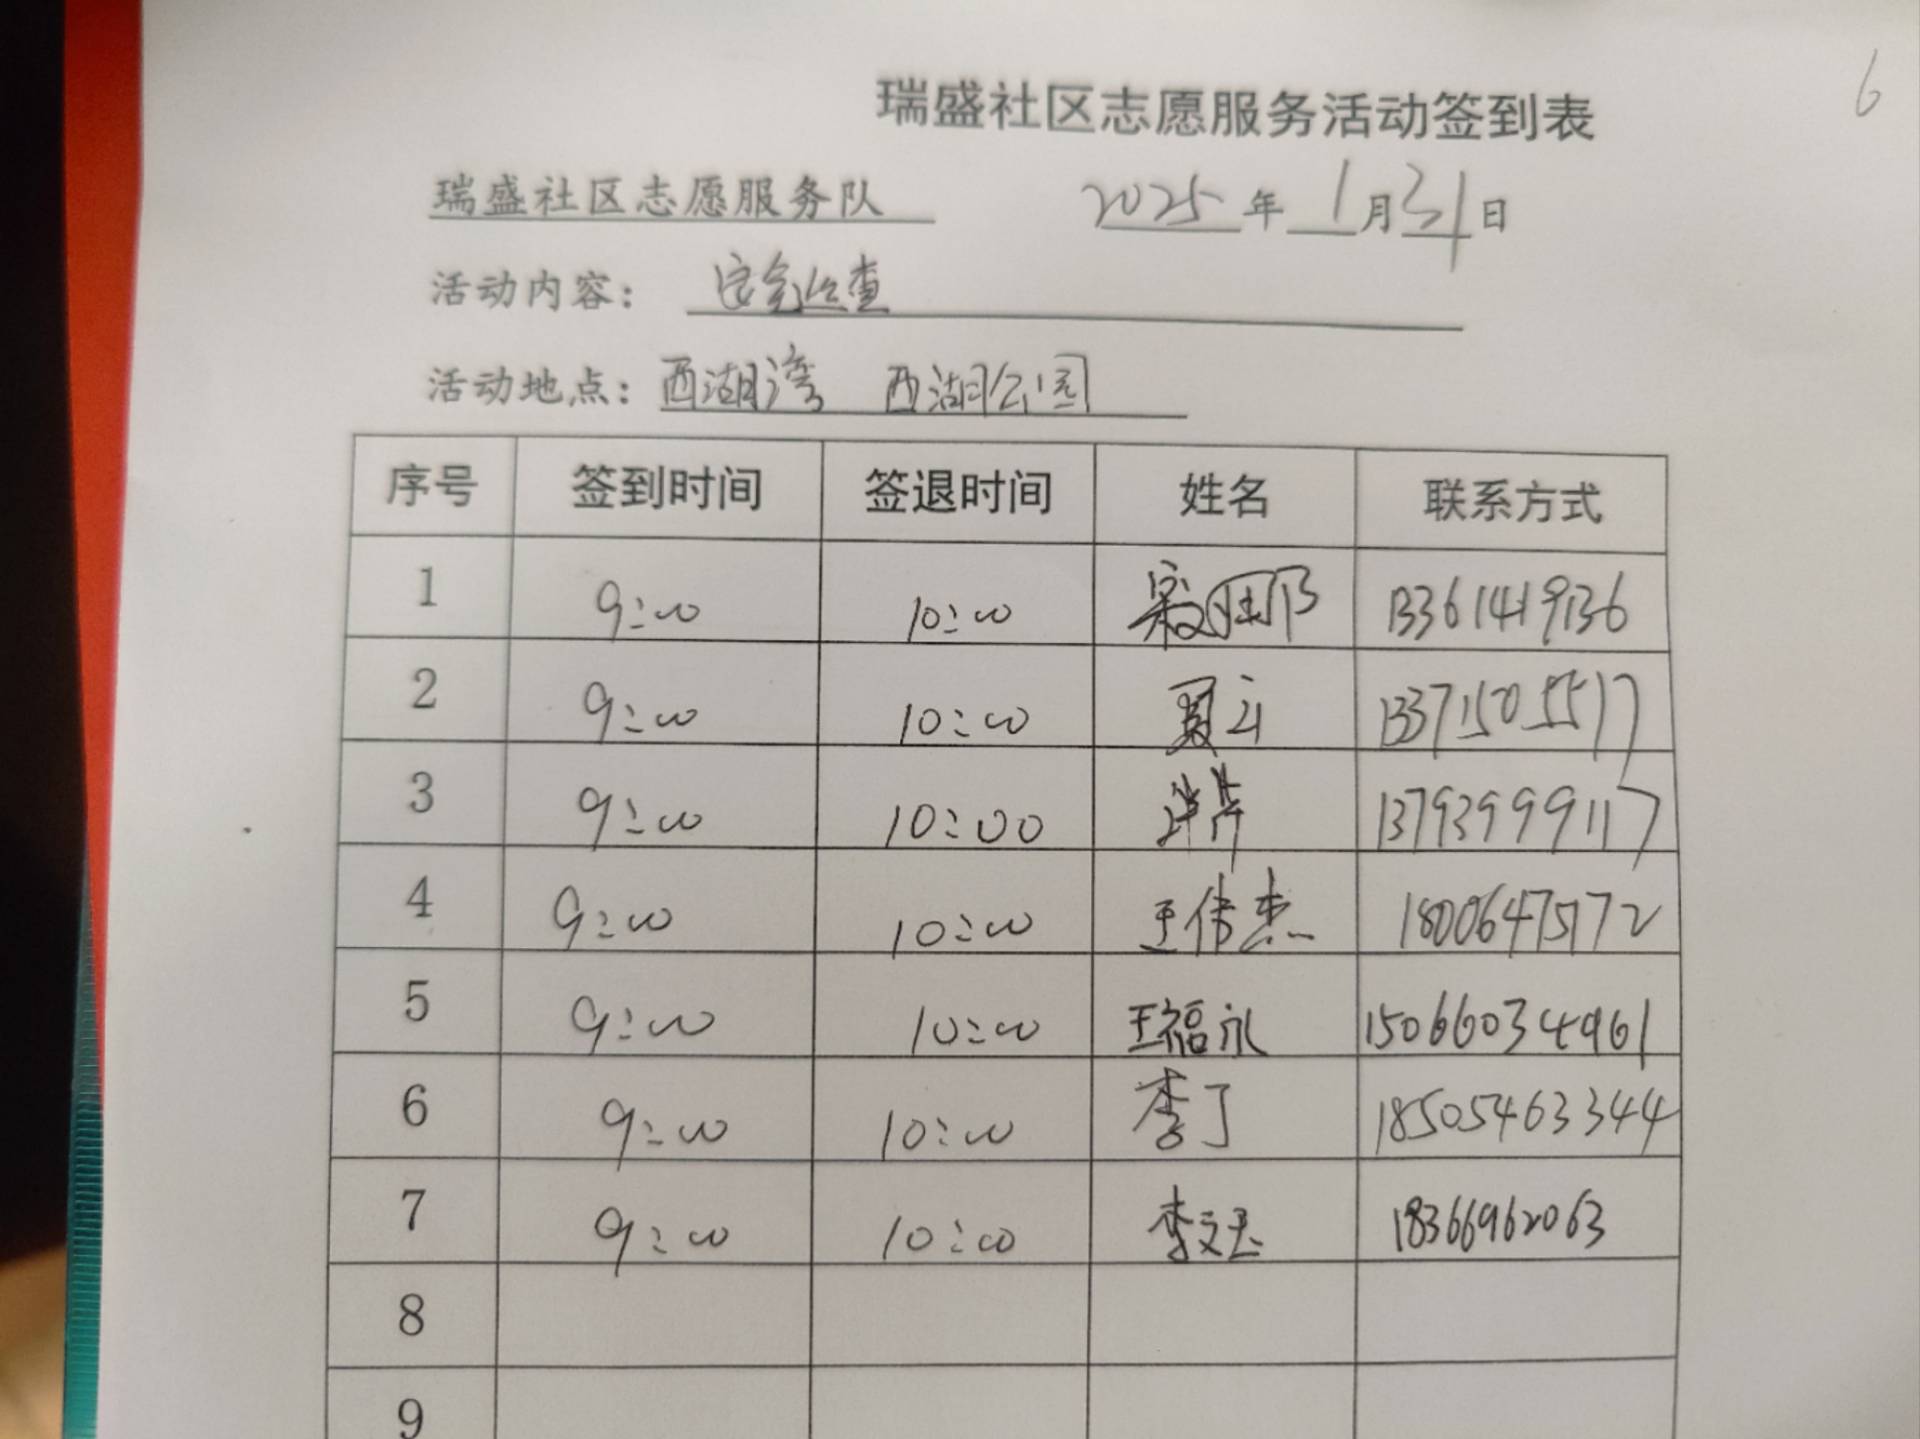 6
瑞盛社区志愿服务活动签到表
瑞盛社区志愿服务队 2025年1月31日
活动内容： 安全检查
活动地点：西湖湾 西湖公园
序号 签到时间 签退时间 姓名 联系方式
1 9:00 10:00 13361419136
2 9:00 10:00 夏云 13371505517
3 9:00 10:00 13793999117
4 9:00 10:00 王伟杰 18006475172
5 9:00 10:00 王福永 15066034961
6 9:00 10:00 李了 18505463344
7 9:00 10:00 李文玉 18366962063
8
9